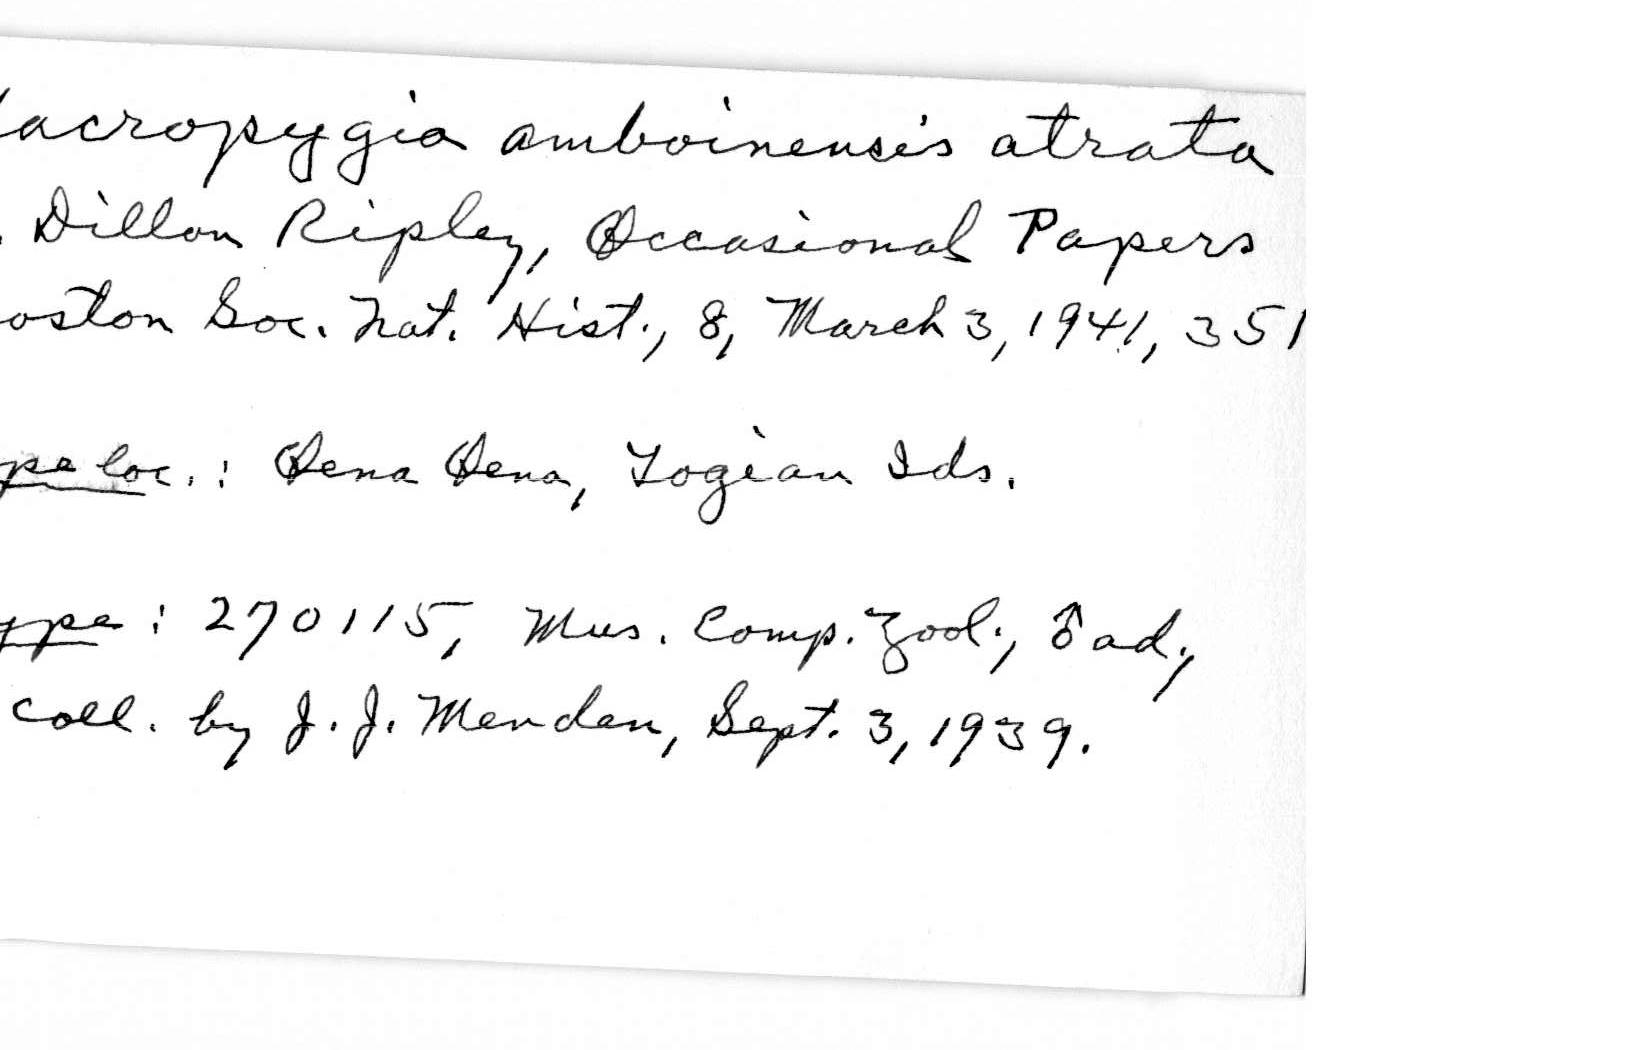 acropygia amboinensis atrata
. Dillon Ripley, Occasional Papers
oston Soc. Nat. Hist., 8, March 3, 1941, 351
pe loc. : Oena Oena, Togian Ids.
ype : 270115, Mus. Comp. Zool., ♂ ad.,
coll. by J. J. Menden, Sept. 3, 1939.